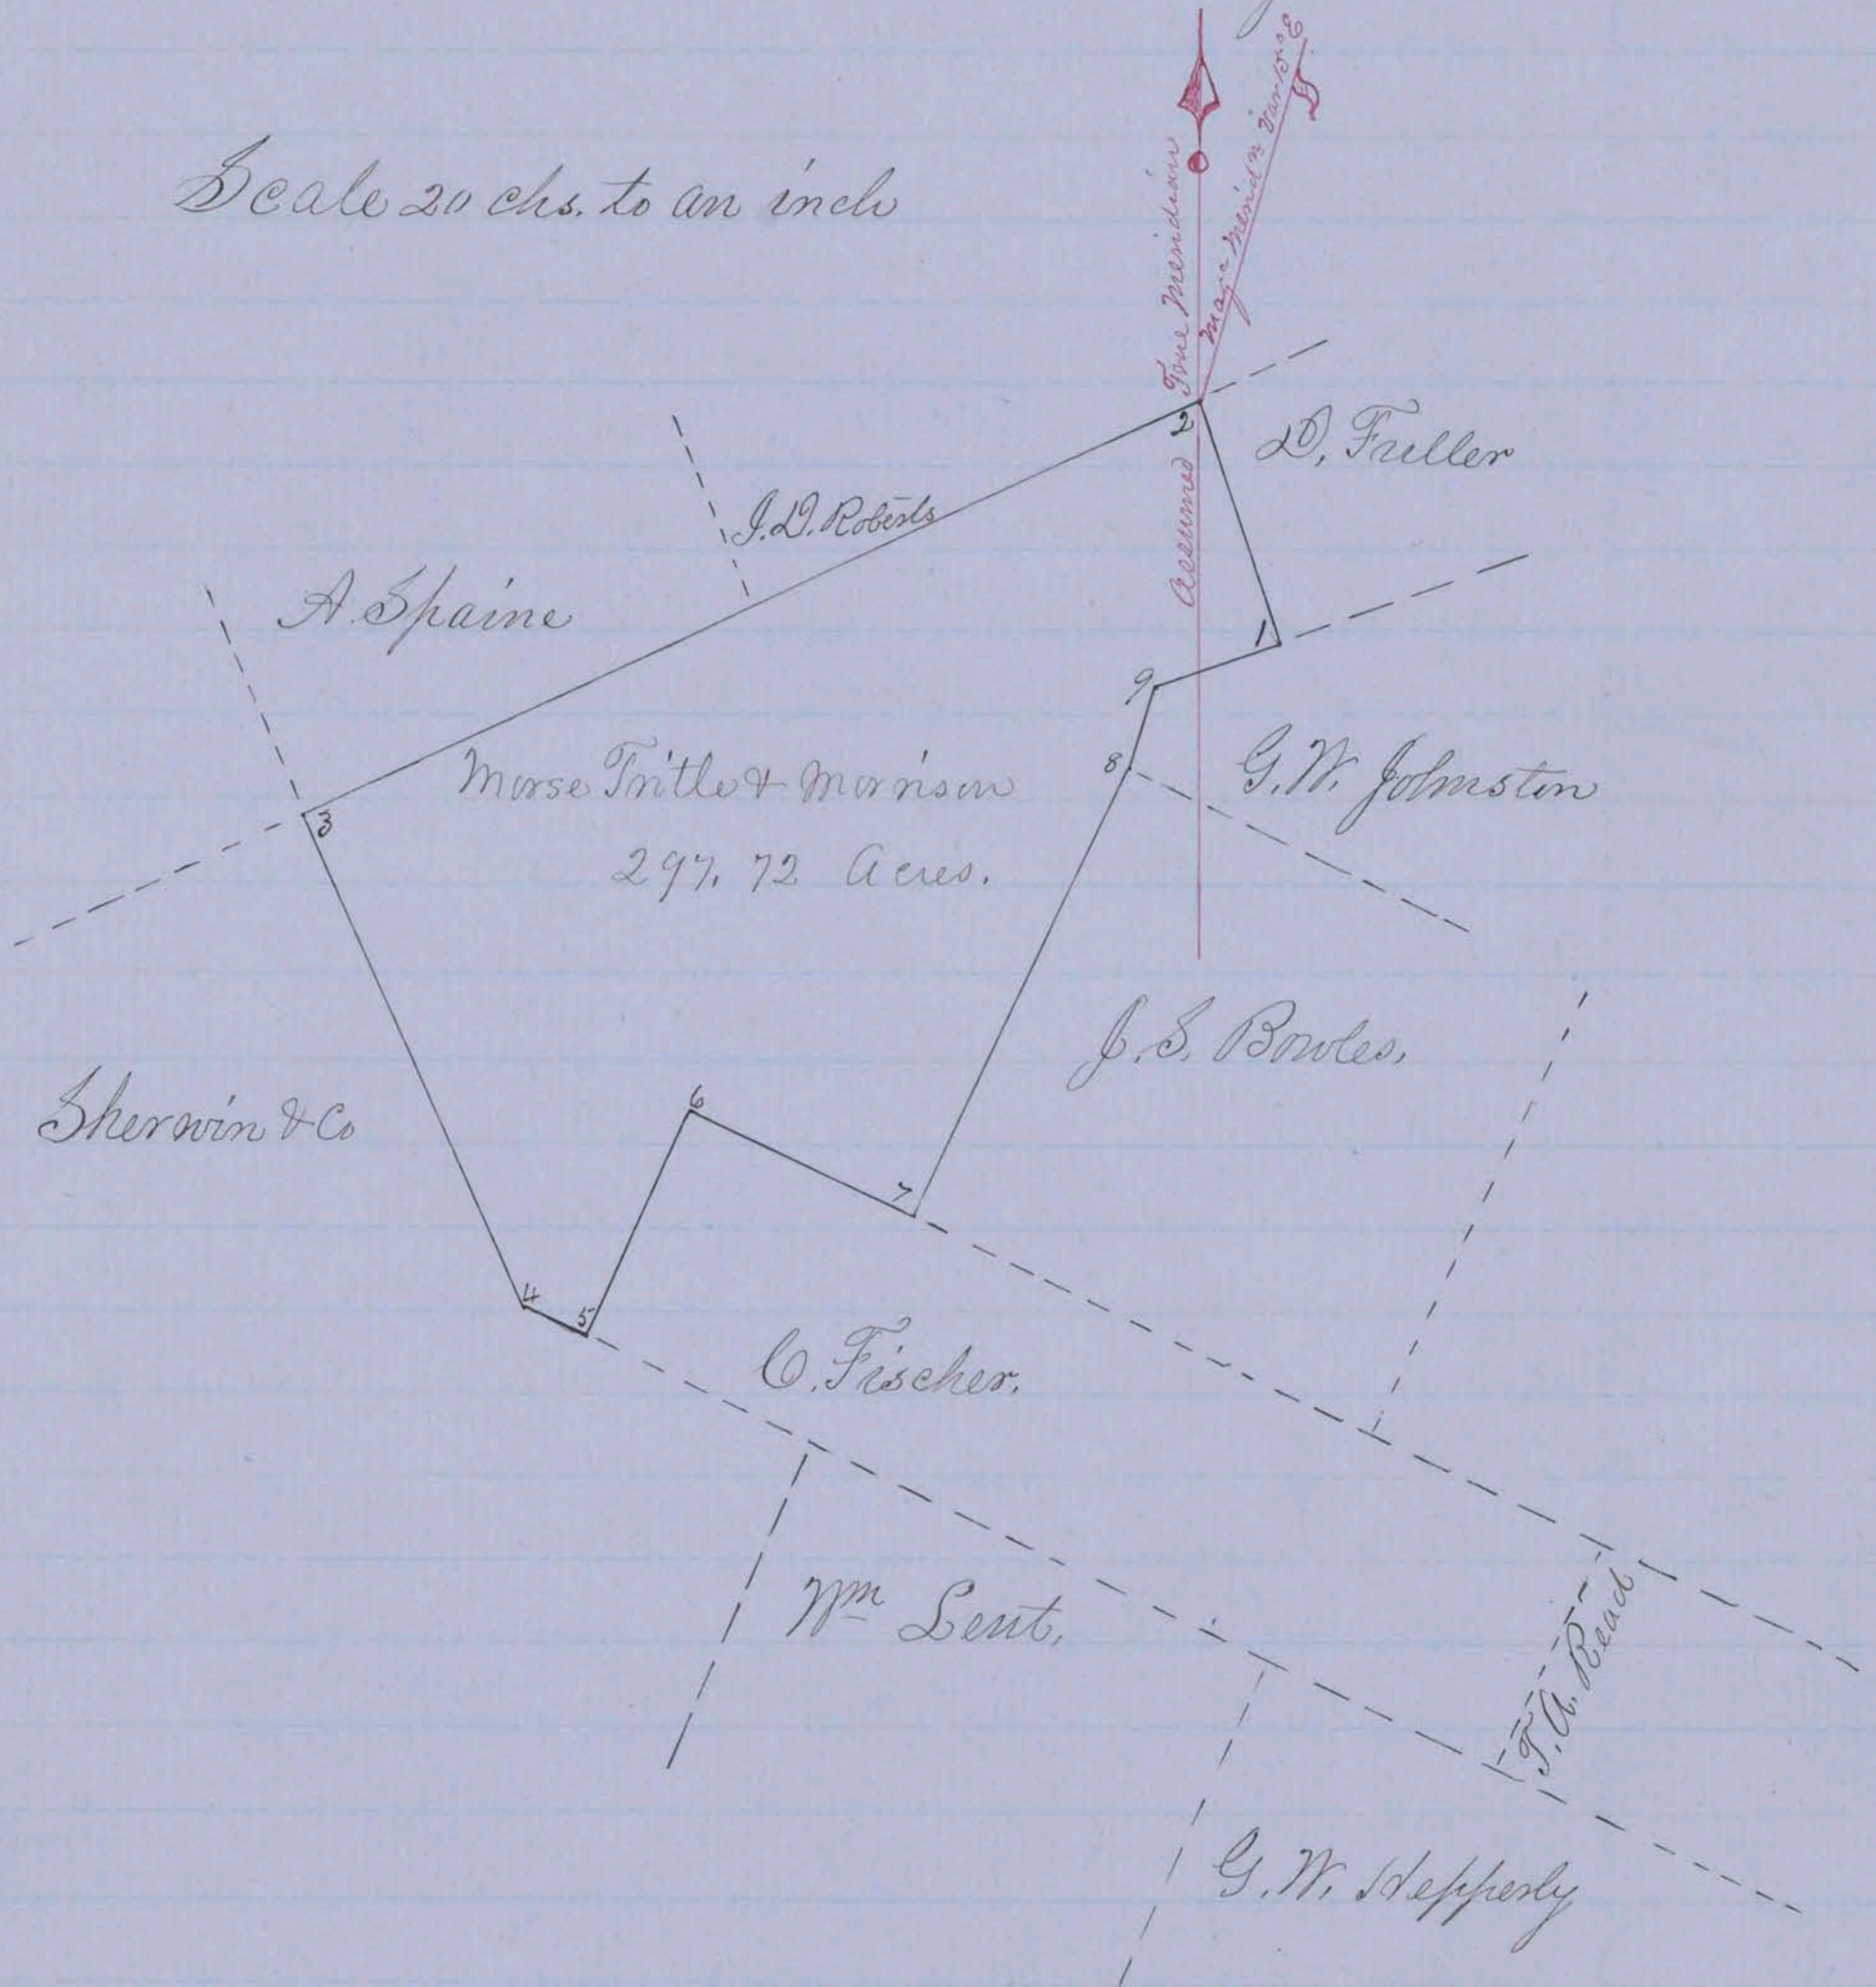 Scale 20 chs. to an inch
Assumed True Meridian
Mag<sup>c</sup> Merid<sup>n</sup> Var 15° E
2
D. Fuller
J. D. Roberts
A. Spaine
1
9
8
G. W. Johnston
Morse Tritle & Morrison
297.72 Acres.
3
J. S. Bowles,
Sherwin & Co
6
7
4
5
C. Fischer.
Wm Lent.
T. A. Read
G. W. Hepperly